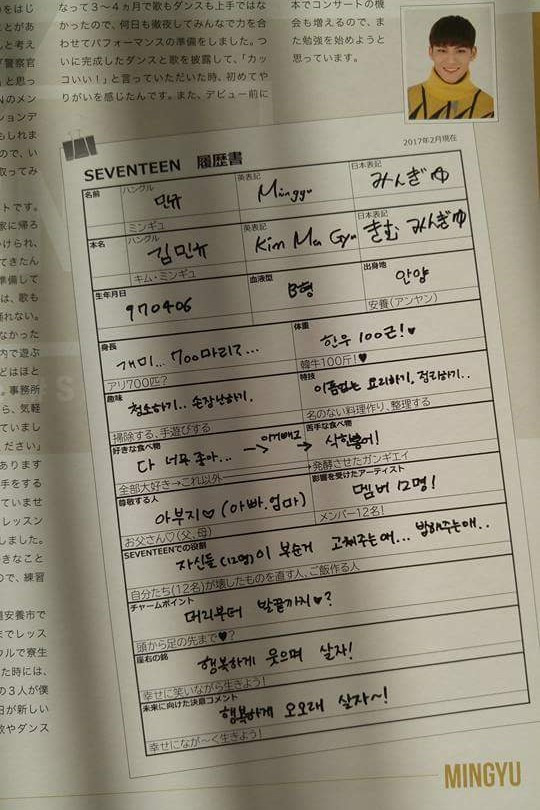 をはじ
ことがあ
と考え
警察官
と思っ
のメン
ションデ
もしれま
ので、い
取ってみ
トです。
家に帰る
かけられ、
てきたん
準備して
は、歌も
踊れない。
なかった
内で遊ぶ
どはほと
。事務所
ら、気軽
ていまし
ください」
あります
手をする
ていませ
レッスン
しました。
きなこと
ので、練習
道安養市で
までレッス
ウルで寮生
た時には、
の3人が僕
日が新しい
歌やダンス
なって3〜4ヵ月で歌もダンスも上手ではな
かったので、何日も徹夜してみんなで力を合
わせてパフォーマンスの準備をしました。つ
いに完成したダンスと歌を披露して、「カッ
コいい！」と言っていただいた時、初めてや
りがいを感じたんです。また、デビュー前に
本でコンサートの機
会も増えるので、ま
た勉強を始めようと
思っています。
2017年2月現在
SEVENTEEN 履歴書
名前 ハングル 민규 英表記 Mingyu 日本表記 みんぎゆ
ミンギュ
本名 ハングル 김민규 英表記 Kim Mn Gyu 日本表記 きむ みんぎゆ
キム・ミンギュ
生年月日 970406 血液型 B형 出身地 안양
安養（アンヤン）
身長 개미... 700마리?... 体重 한우 100근!♥
アリ700匹? 韓牛100斤!♥
趣味 청소하기.. 손장난하기. 特技 이름없는 요리하기, 정리하기..
掃除する、手遊びする 名のない料理作り、整理する
好きな食べ物 다 너무 좋아... --> 이거빼고 --> 苦手な食べ物 삭힌홍어!
全部大好き→これ以外 発酵させたガンギエイ
尊敬する人 아부지♡(아빠.엄마) 影響を受けたアーティスト 멤버 12명!
お父さん♡(父、母) メンバー12名!
SEVENTEENでの役割 자식들(12명)이 부순거 고쳐주는애... 밥해주는애..
自分たち(12名)が壊したものを直す人、ご飯作る人
チャームポイント 머리부터 발끝까지♥?
頭から足の先まで♥?
座右の銘 행복하게 웃으며 살자!
幸せに笑いながら生きよう!
未来に向けた決意コメント 행복하게 오오래 살자~!
幸せになが〜く生きよう!
MINGYU